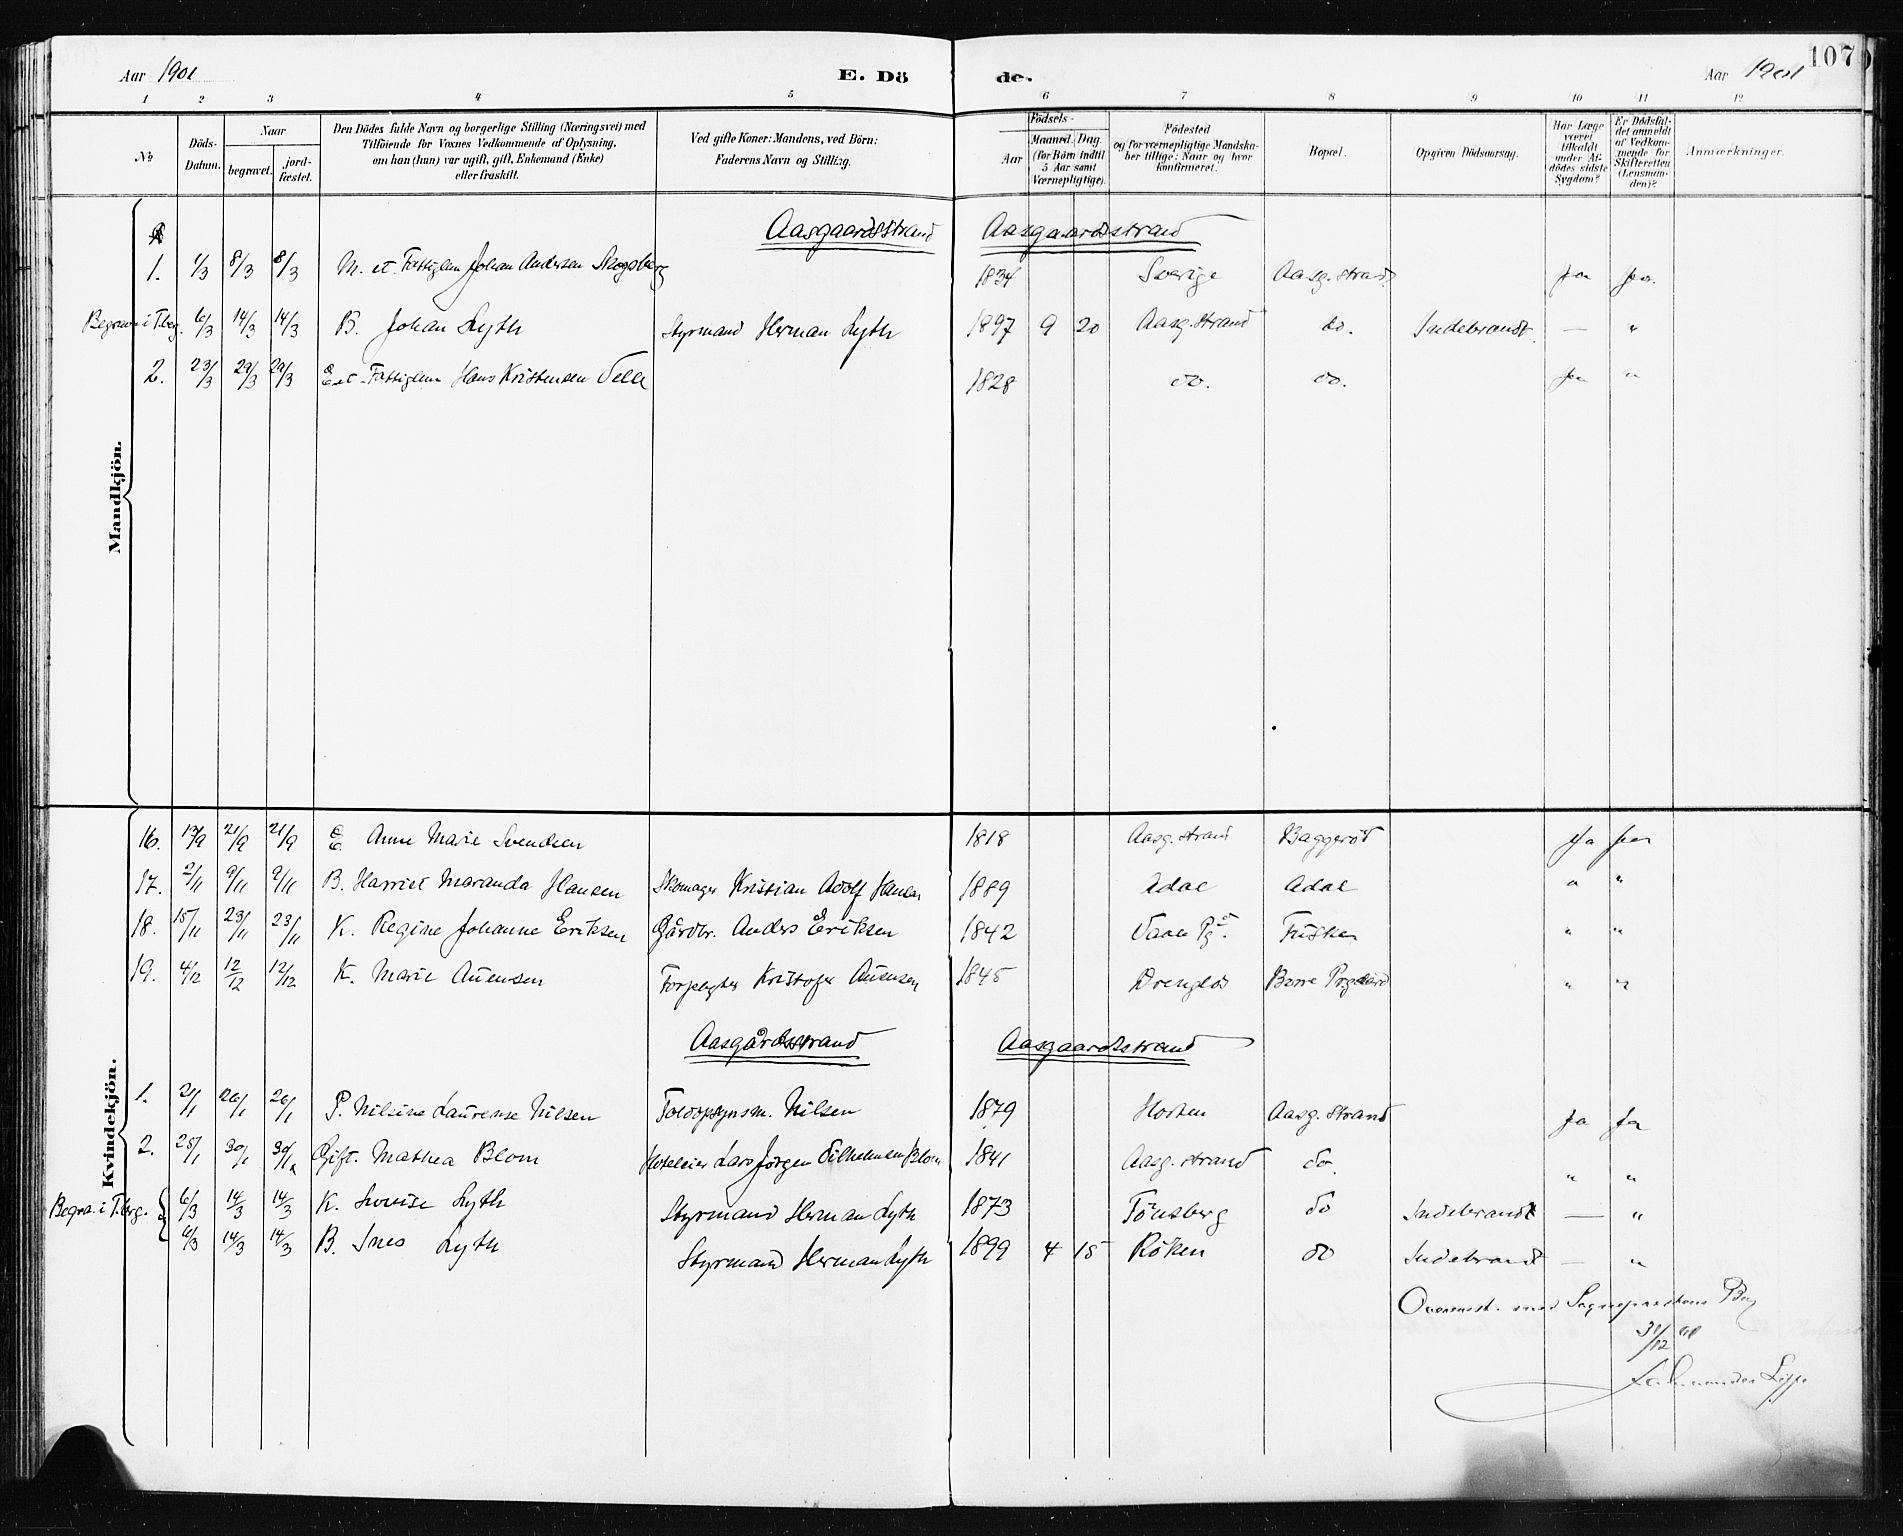 107
Aar 1901 E. Dö de. Aar 1901
1 2 3 4 5 6 7 8 9 10 11 12
No
Döds-Datum.
Naar
begravet.
jord-fæstet.
Den Dödes fulde Navn og borgerlige Stilling (Næringsvei) med
Tilföiende for Voxnes Vedkommende af Oplysning,
om han (hun) var ugift, gift, Enkemand (Enke)
eller fraskilt.
Ved gifte Koner: Mandens, ved Börn:
Faderens Navn og Stilling.
Födsels-
Aar
Maaned. Dag.
(for Börn indtil
5 Aar samt
Værnepligtige).
Födested
og for værnepligtige Mandska-
ber tillige: Naar og hvor
konfirmeret.
Bopæl.
Opgiven Dödsaarsag.
Har Læge
været
tilkaldt
under Af-
dödes sidste
Sygdom?
Er Dödsfal-
det anmeldt
af Vedkom-
mende for
Skifteretten
(Lensman-
den)?
Anmærkninger.
Mandkjön.
Aasgaardsstrand Aasgaardsstrand
1. 1/3 8/3 8/3 M. et. Fattiglem Johan Andersen Skogsberg 1834 Sverige Aasg. strand Ja Ja
Begraven i Tberg. 6/3 14/3 14/3 B. Johan Lyth Styrmand Herman Lyth 1897 9 20 Aasg. strand do. Indebrændt. — "
2. 23/3 29/3 29/3 E et. Fattiglem Hans Kristensen Velle 1828 do. do. Ja "
Kvindekjön.
16. 13/9 21/9 21/9 E Anne Marie Svendsen 1818 Aasg. strand Baggeröd Ja Ja
17. 2/11 9/11 9/11 B. Harriet Maranda Hansen Skomager Kristian Adolf Hansen 1889 Adal Adal " "
18. 15/11 23/11 23/11 K. Regine Johanne Eriksen Gårdbr. Anders Eriksen 1842 Vaale Pgd. " "
19. 4/12 12/12 12/12 K. Marie Auensen Forpagter Kristofer Auensen 1845 Borre Prgaard " "
Aasgårdsstrand Aasgaardsstrand
1. 21/1 26/1 26/1 P. Nilsine Laurense Nilsen Toldopsynsm. Nilsen 1879 Horten Aasg. strand Ja Ja
2. 25/1 30/1 30/1 Gift. Mathea Blom Hoteleier Lars Jørgen Vilhelmsen Blom 1841 Aasg. strand do. " "
Begra. i Tberg. 6/3 14/3 14/3 K. Lovise Lyth Styrmand Herman Lyth 1873 Tönsberg do Indebrændt — "
6/3 14/3 14/3 B. Ines Lyth Styrmand Herman Lyth 1899 4 15 Röken do Indebrændt — "
Overenst. med Sogneprestens Bog
31/12